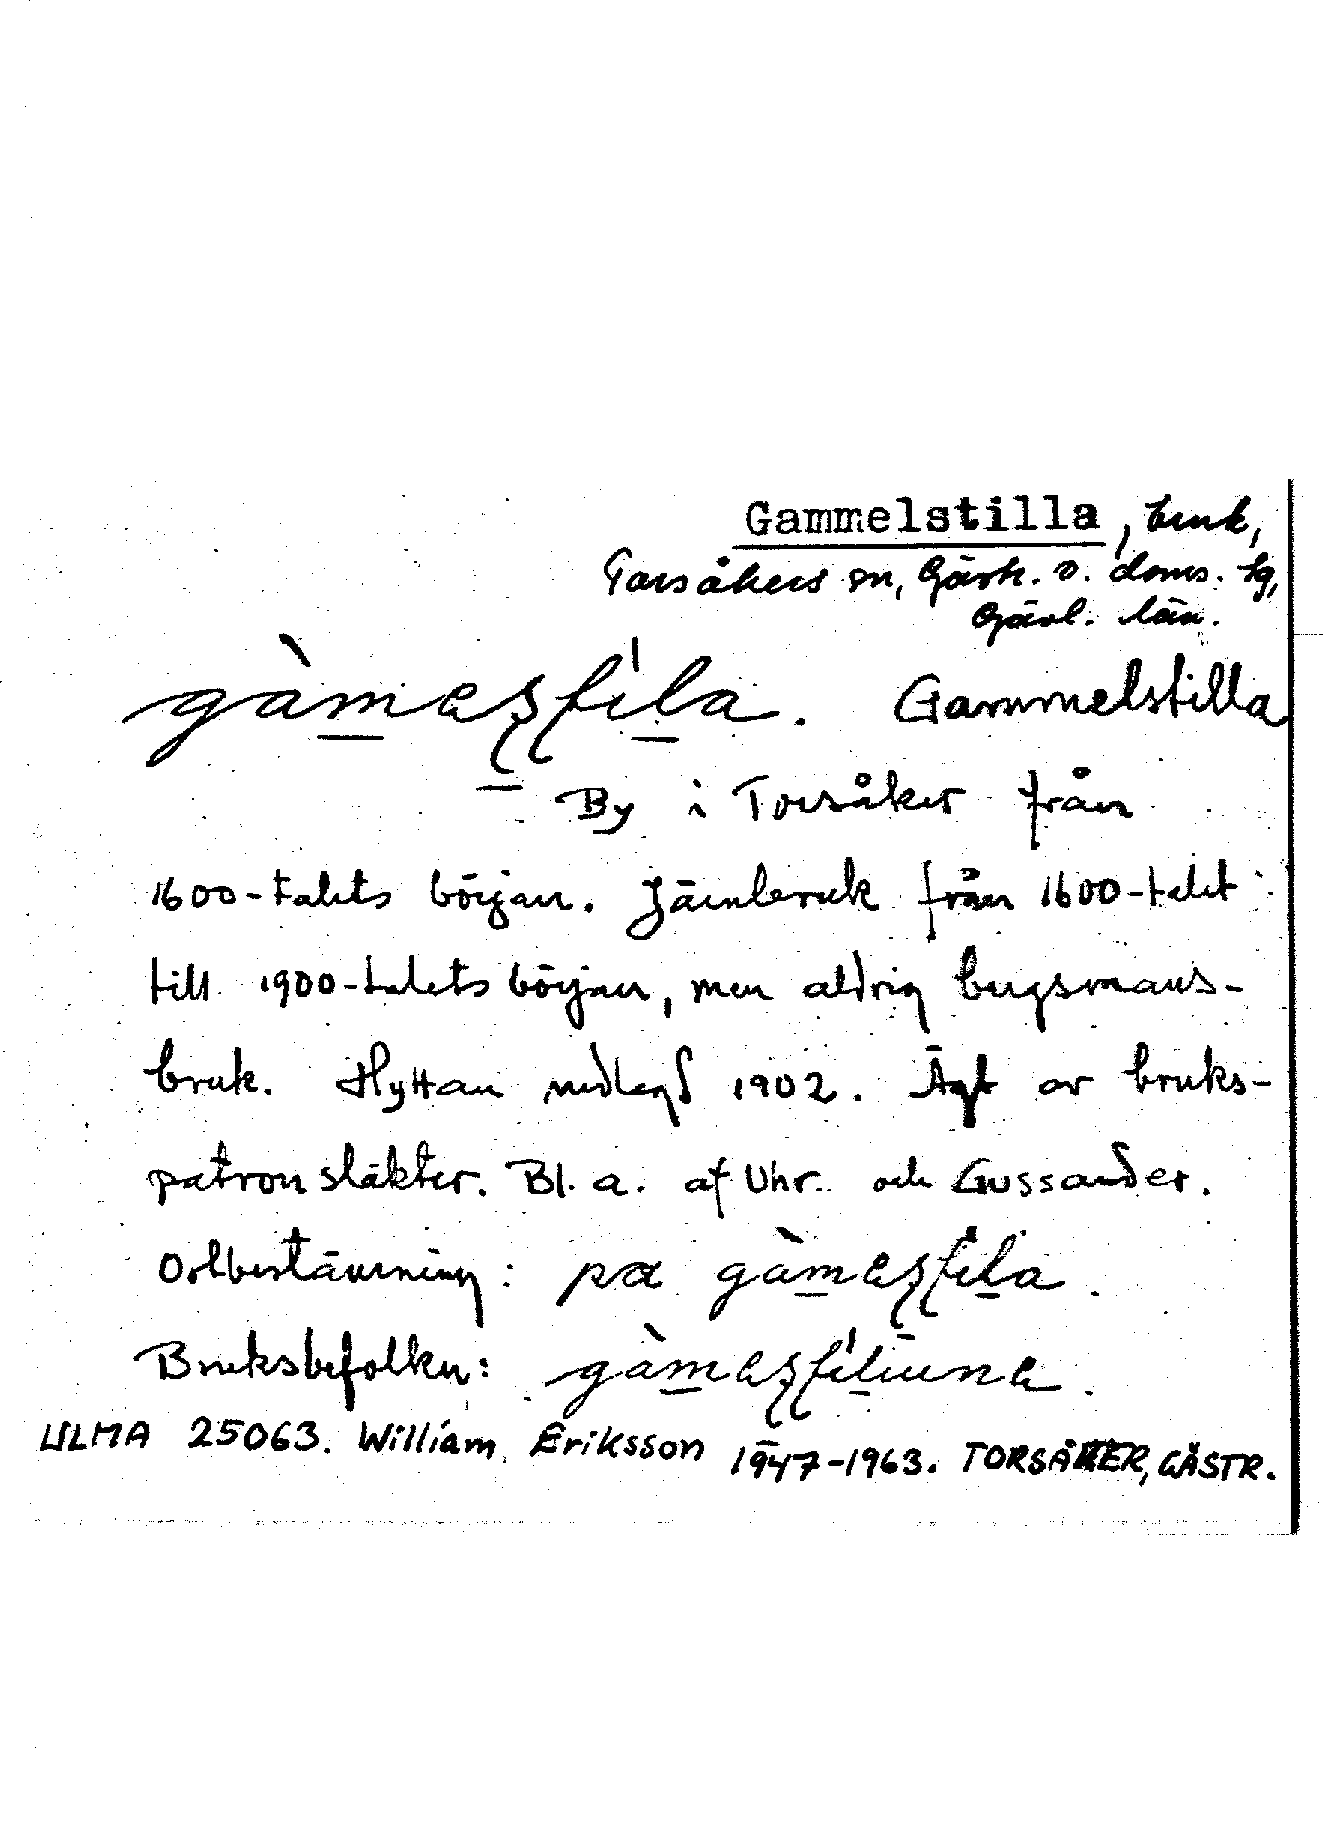 Gammelstilla, bruk,
Torsåkers sn, Gästr. v. doms. tg,
Gävl. län.
gàmesti̍la. Gammelstilla
By i Torsåker från
1600-talets början. Järnbruk från 1600-talet
till 1900-talets början, men aldrig bergsmans-
bruk. Hyttan nedlagd 1902. Ägt av bruks-
patronsläkter. Bl. a. af Uhr och Gussander.
Ortbestämning: pa gàmesti̍la.
Bruksbefolkn:
ULMA 25063. William Eriksson 1947-1963. TORSÅKER, GÄSTR.